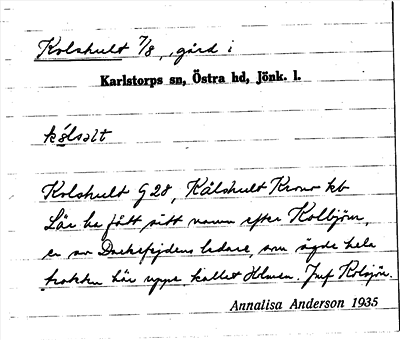 Kolshult 7/8, gård i
Karlstorps sn, Östra hd, Jönk. l.
kɷ̀lsɷlt
Kolshult G 28, Kålshult Krono kb
Lär ha fått sitt namn efter Kolbjörn,
en av Dackefejdens ledare, som ägde hela
trakten här uppe kallet Holmen. Jmf Kolsjön.
Annalisa Anderson 1935